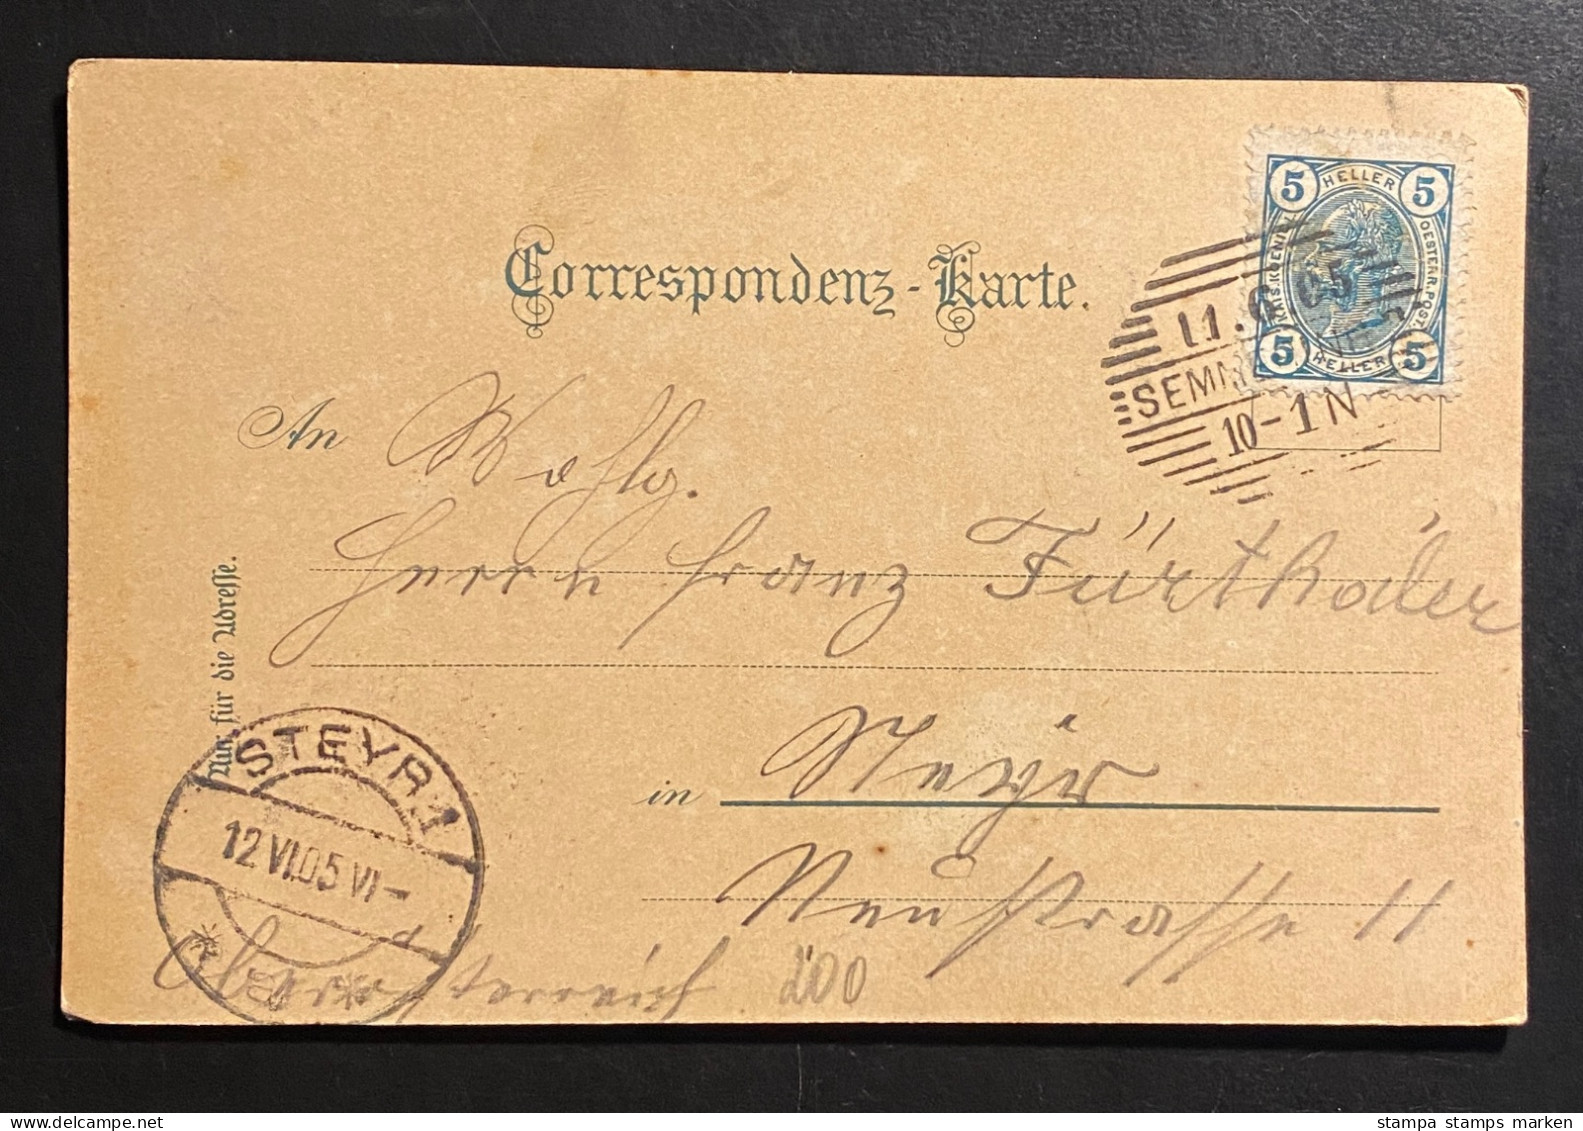 Correspondenz-Karte.
5 HELLER 5
KAIS. KOENIGL. OESTERR. POST.
5 HELLER 5
11.6 05
SEMM
10-1 N
An Wohlg.
Herrn Franz Fürthaler
in Steyr
Neustrasse 11
Oberösterreich
200
Nur für die Adresse.
STEYR 1
12 VI 05 VI-
stampa stamps marken